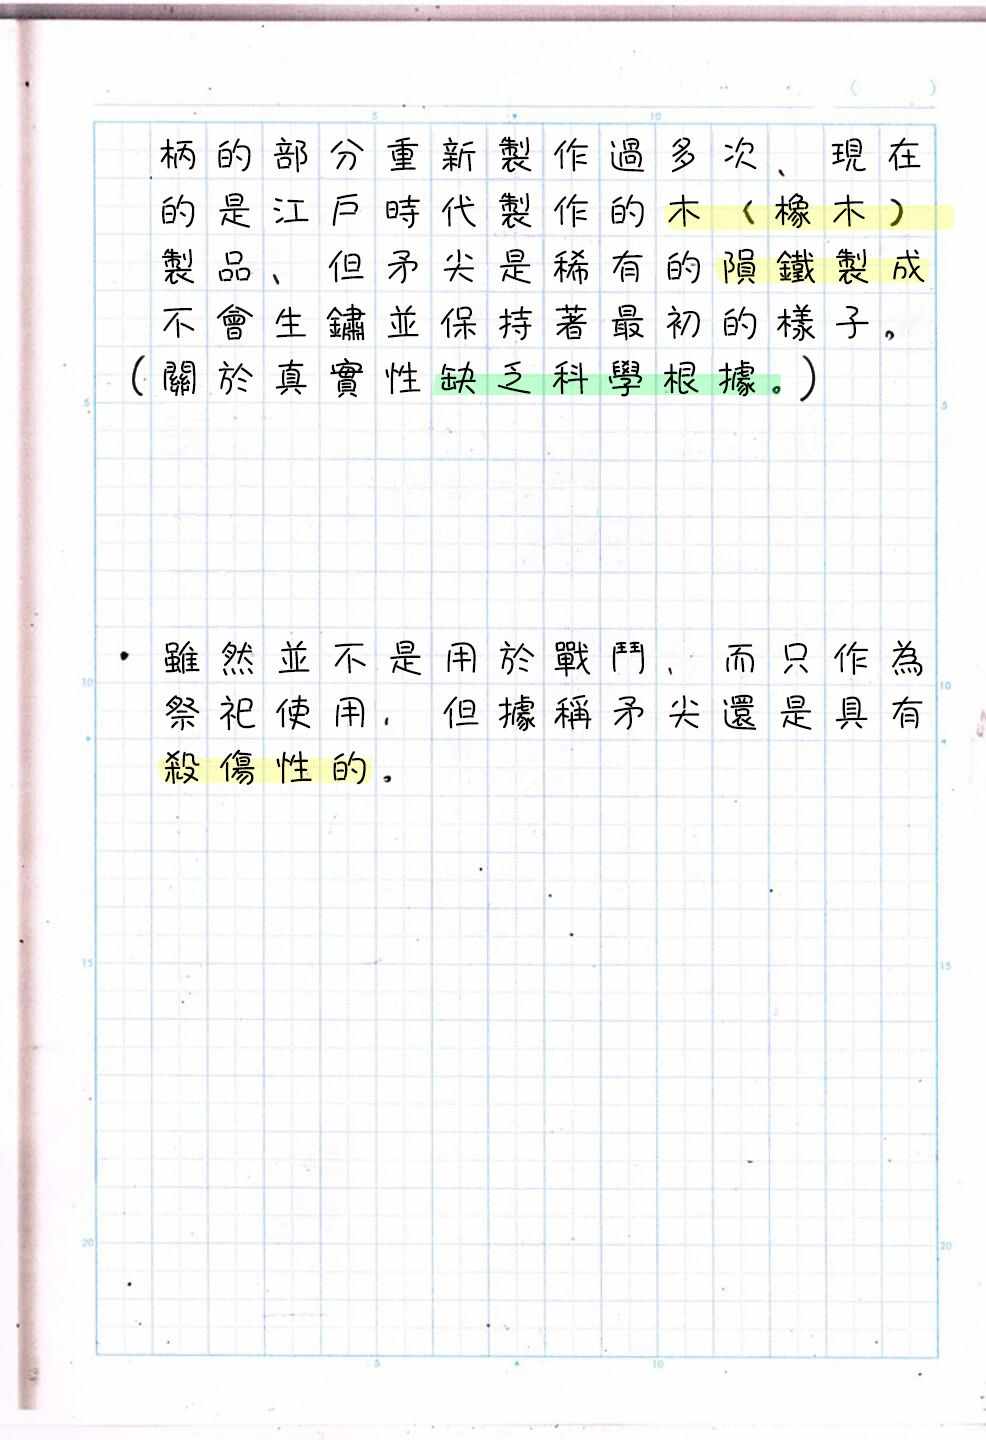 ( )
5 10
柄的部分重新製作過多次、現在
的是江戶時代製作的木(橡木)
製品、但矛尖是稀有的隕鐵製成
不會生鏽並保持著最初的樣子。
(關於真實性缺乏科學根據。)
5 5
・雖然並不是用於戰鬥、而只作為
10 10
祭祀使用、但據稱矛尖還是具有
殺傷性的。
15 15
20 20
5 10